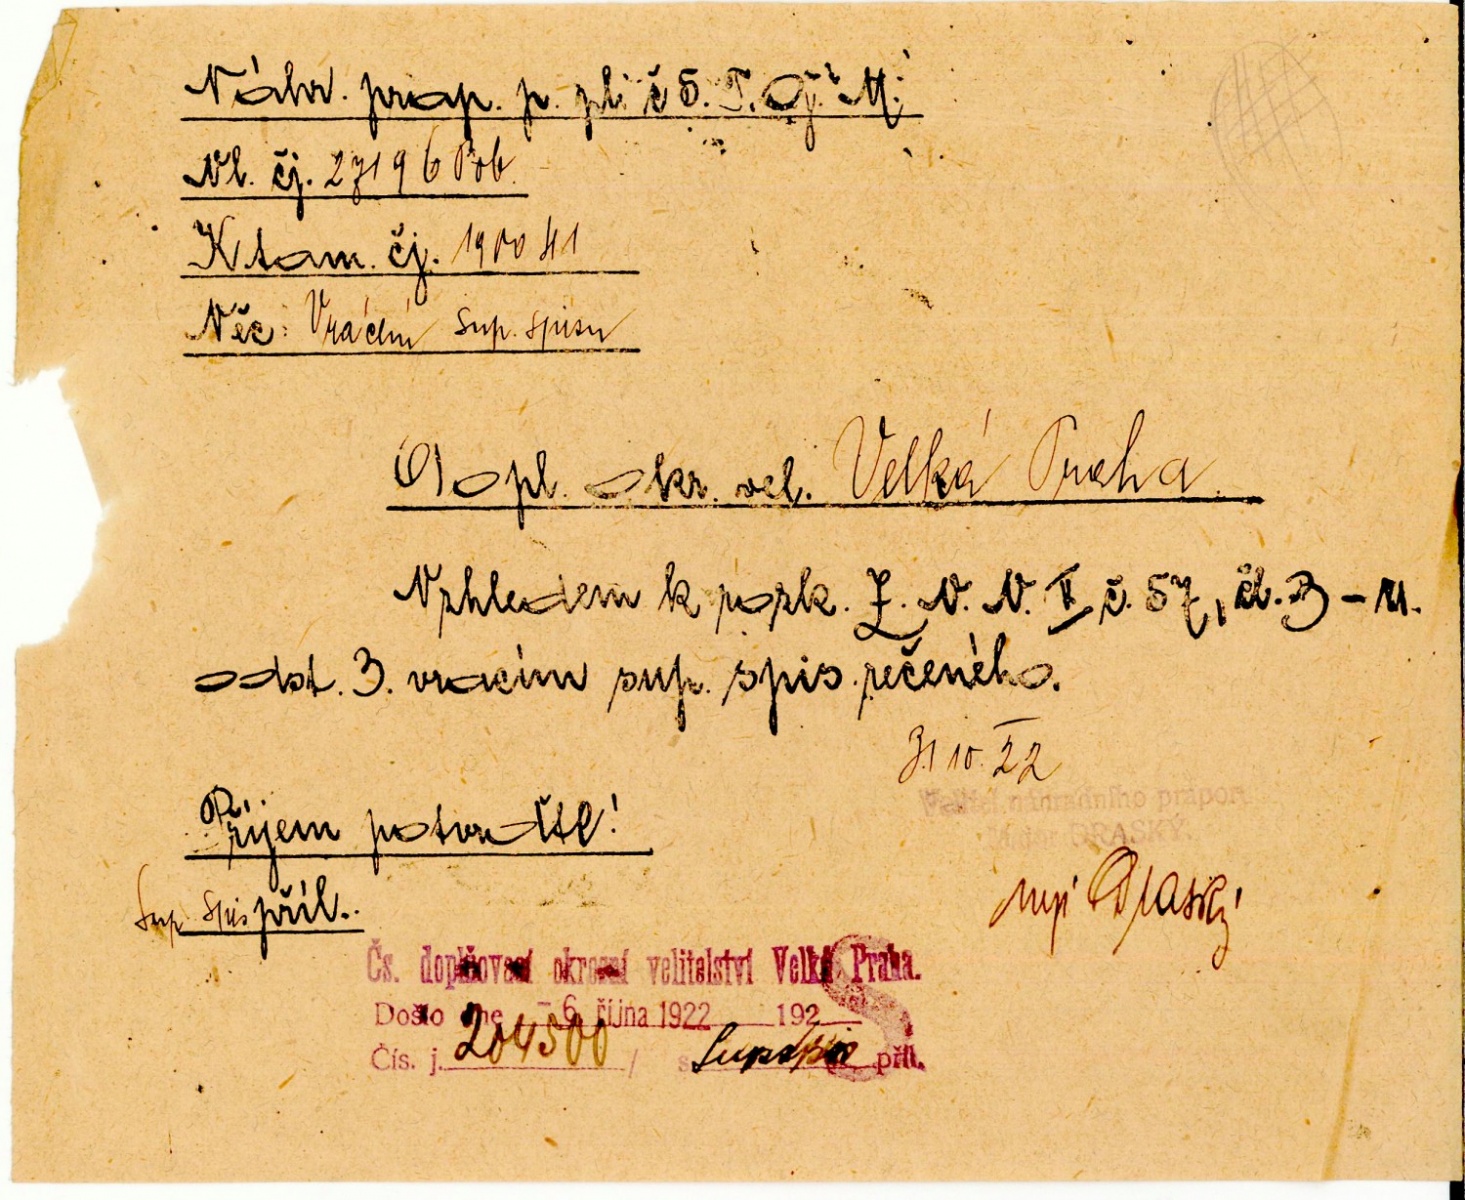 Náhr. prap. p. pl. č 5. T. G. M.
Vl. čj. 27196 Pob.
K tam. čj. 190041
Věc: Vrácení sup. spisu
Dopl. okr. vel. Velká Praha.
Vzhledem k rozk. Z. V. V. V č. 57, čl. 3 – u.
odst. 3. vracím sup. spis. řečeného.
3/10. 22
Velitel náhradního praporu
major DRASKÝ.
Příjem potvrďte!
Sup spis příl..
mjr Draský
Čs. doplňovací okresní velitelství Velká Praha.
Došlo dne -6. října 1922 192
Čís. j. 204500 / s Sup spis příl.
S